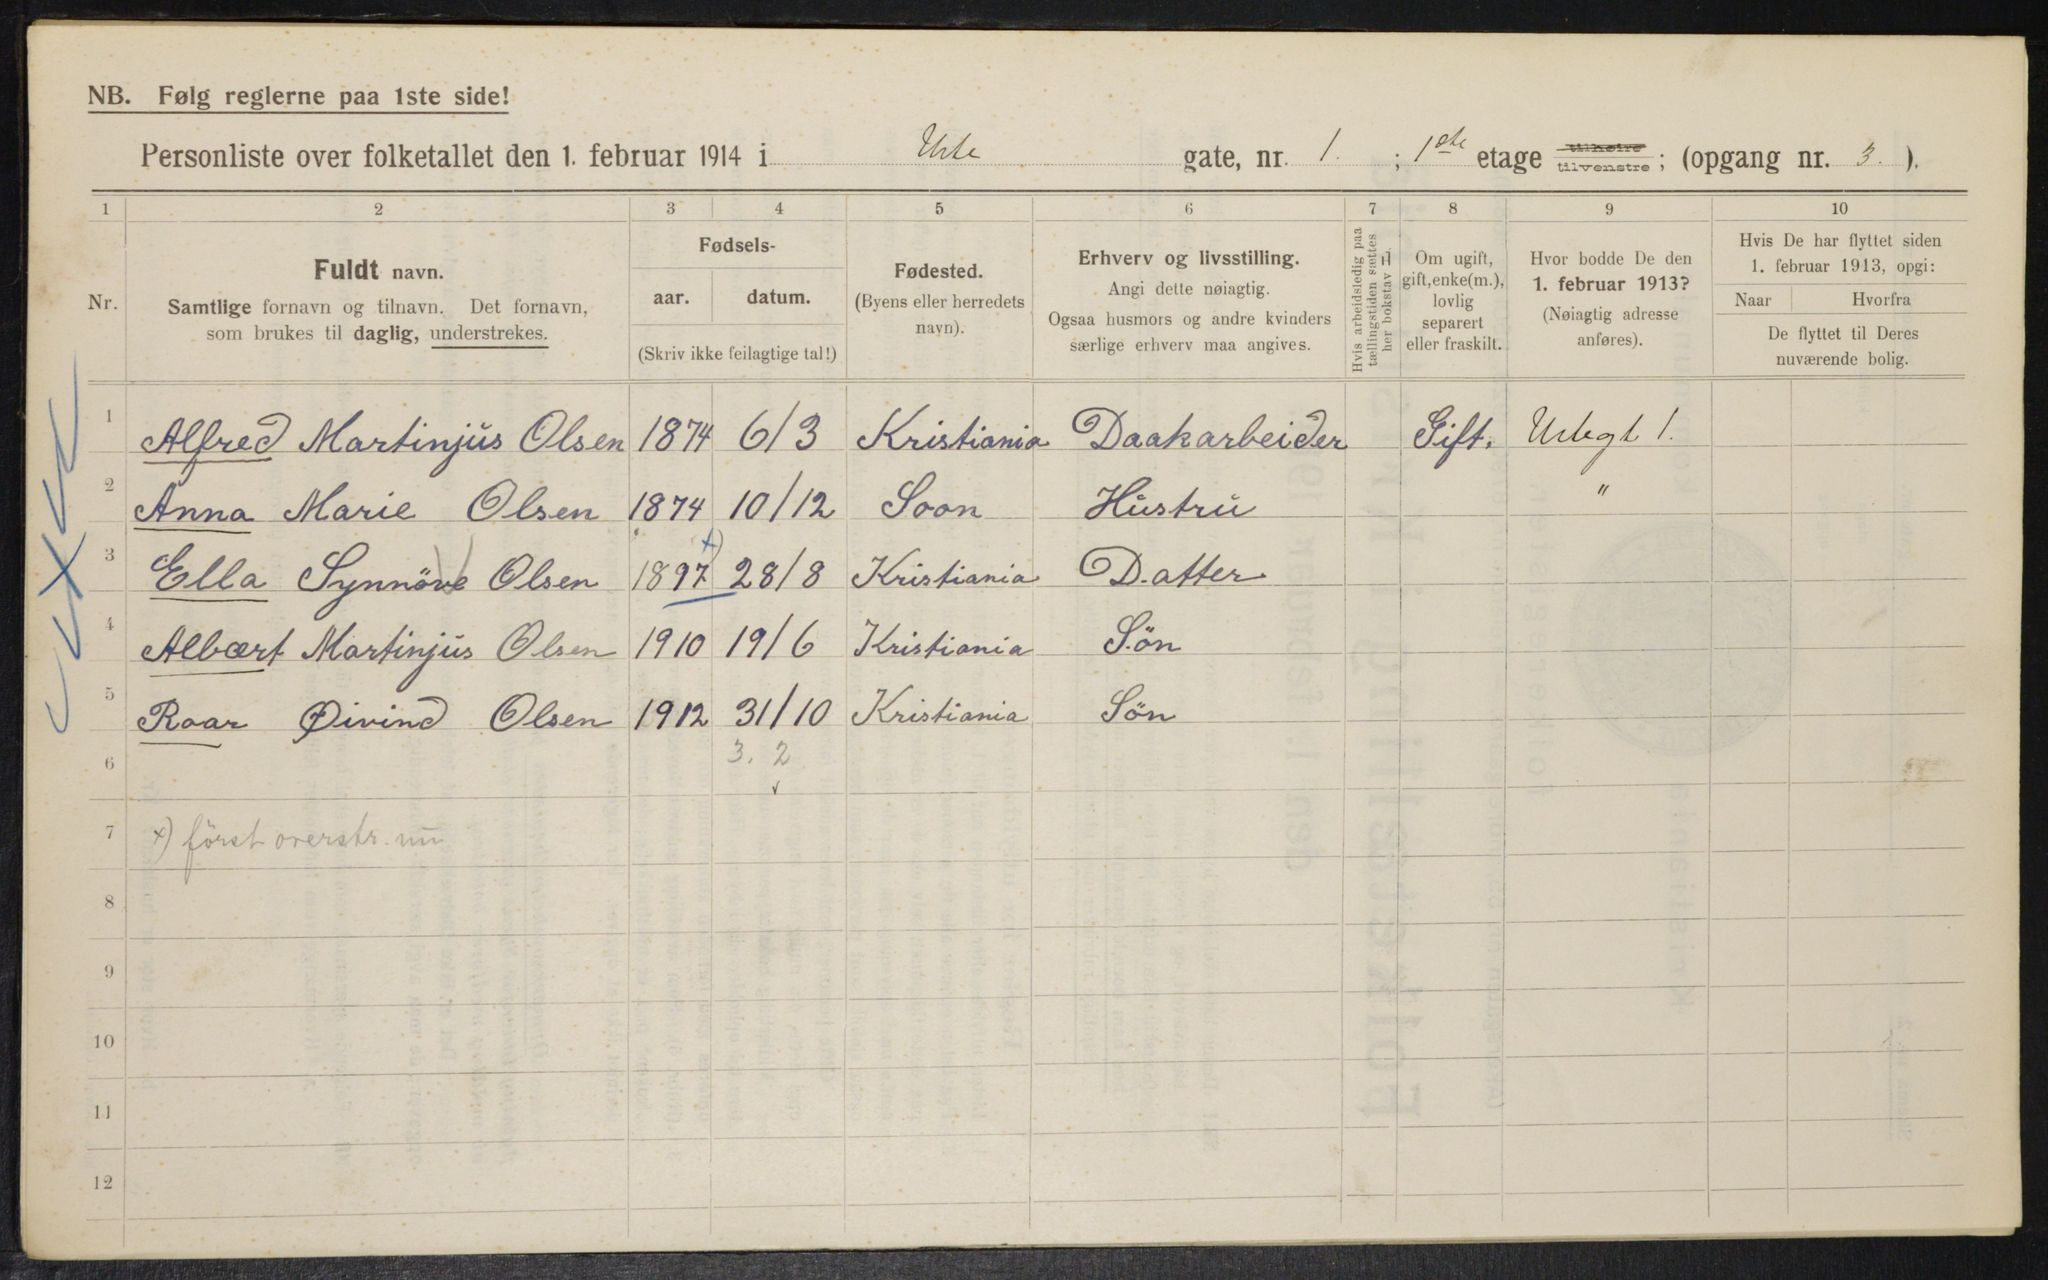 NB. Følg reglerne paa 1ste side!
Personliste over folketallet den 1. februar 1914 i Urte gate, nr. 1. ; 1ste etage tilhøire tilvenstre ; (opgang nr. 3. ).
1 2 3 4 5 6 7 8 9 10
Nr.
Fuldt navn.
Samtlige fornavn og tilnavn. Det fornavn,
som brukes til daglig, understrekes.
Fødsels-
aar. datum.
(Skriv ikke feilagtige tal!)
Fødested.
(Byens eller herredets
navn).
Erhverv og livsstilling.
Angi dette nøiagtig.
Ogsaa husmors og andre kvinders
særlige erhverv maa angives.
Hvis arbeidsledig paa
tællingstiden sættes
her bokstav L.
Om ugift,
gift, enke(m.),
lovlig
separert
eller fraskilt.
Hvor bodde De den
1. februar 1913?
(Nøiagtig adresse
anføres).
Hvis De har flyttet siden
1. februar 1913, opgi:
Naar Hvorfra
De flyttet til Deres
nuværende bolig.
1 Alfred Martinjus Olsen 1874 6/3 Kristiania Daakarbeider Gift. Urtegt 1.
2 Anna Marie Olsen 1874 10/12 Soon Hustru "
3 Ella Synnöve Olsen 1897 x) 28/8 Kristiania Datter
4 Albært Martinjus Olsen 1910 19/6 Kristiania Sön
5 Roar Øivind Olsen 1912 31/10 Kristiania Sön
6 3. 2
7 x) först overstr.
8
9
10
11
12